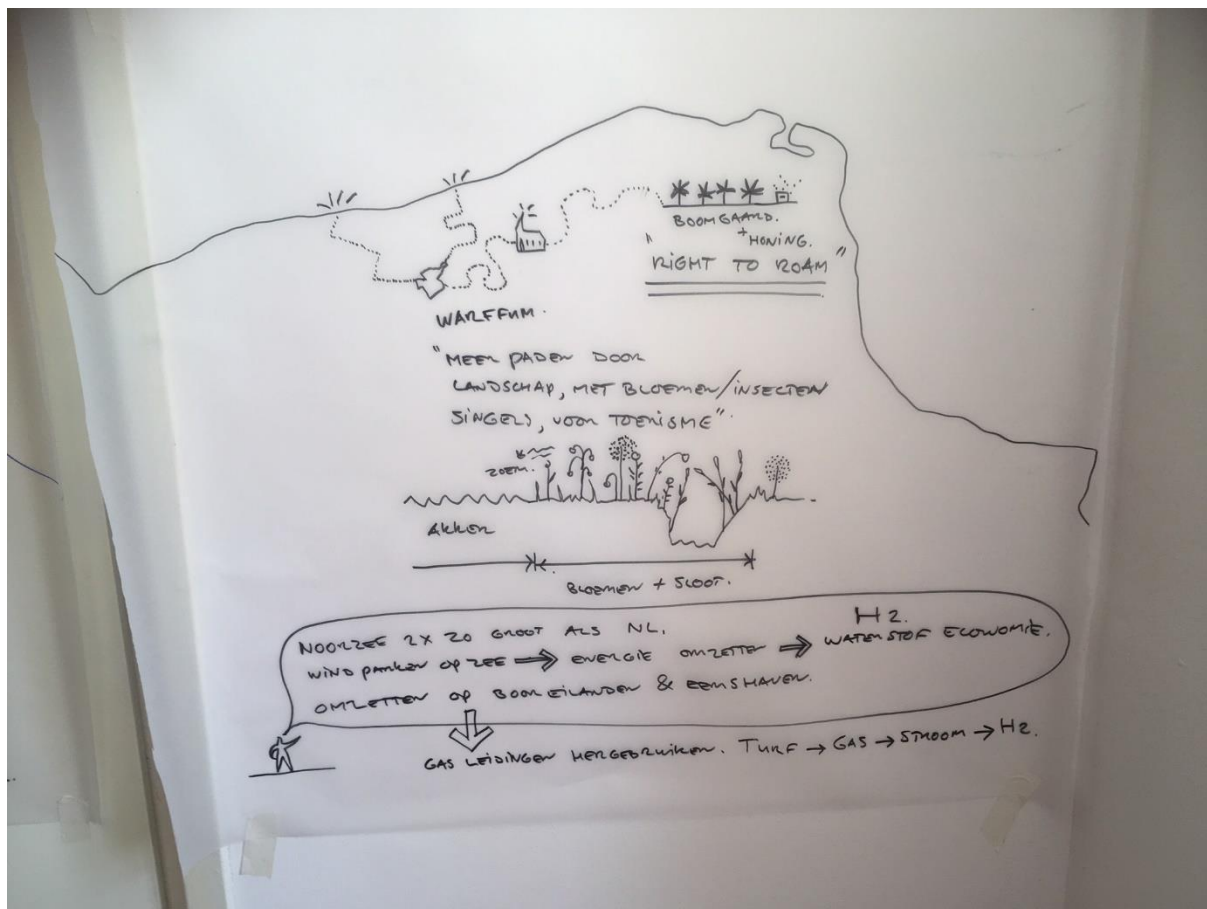 BOOMGAARD.
+
HONING.
"RIGHT TO ROAM"
WARFFUM.
"MEER PADEN DOOR
LANDSCHAP, MET BLOEMEN/INSECTEN
SINGELS, VOOR TOERISME".
ZOEM.
AKKER
BLOEMEN + SLOOT.
NOORZEE 2X ZO GROOT ALS NL.
WIND PARKEN OP ZEE ⇒ ENERGIE OMZETTEN ⇒ H2. WATERSTOF ECONOMIE.
OMZETTEN OP BOOREILANDEN & EEMSHAVEN.
GAS LEIDINGEN HERGEBRUIKEN. TURF → GAS → STROOM → H2.